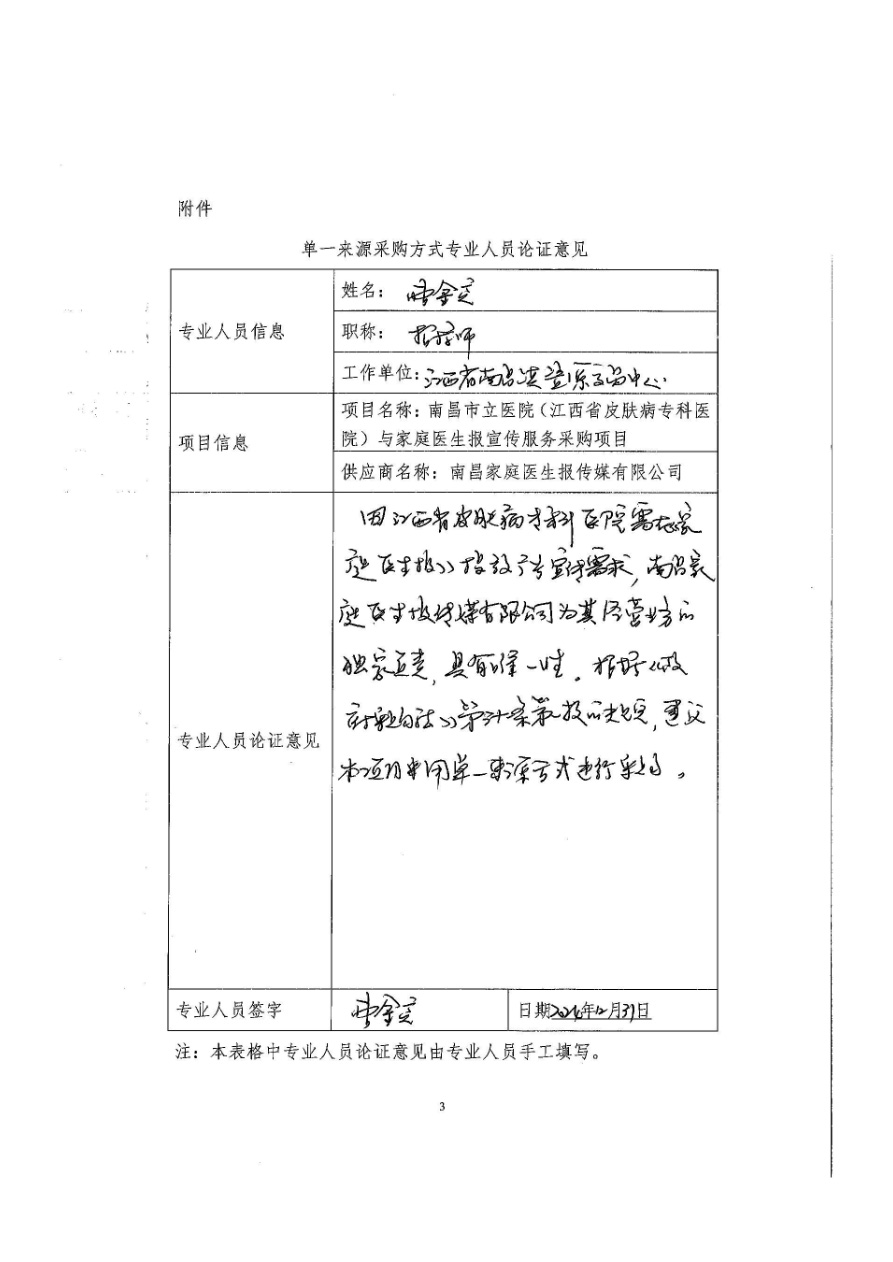 附件
单一来源采购方式专业人员论证意见
专业人员信息
姓名：
职称：
工作单位：江西省南昌 中心
项目信息
项目名称：南昌市立医院（江西省皮肤病专科医
院）与家庭医生报宣传服务采购项目
供应商名称：南昌家庭医生报传媒有限公司
专业人员论证意见
因江西省皮肤病专科医院需在家
庭医生报》投放广告宣传需求，南昌家
庭医生报传媒有限公司为其经营业务的
独家 ，具有唯一性。根据《政
府采购法》第三十一条第一款的规定，建议
本项目采用单一来源方式进行采购。
专业人员签字
日期 年12月31日
注：本表格中专业人员论证意见由专业人员手工填写。
3